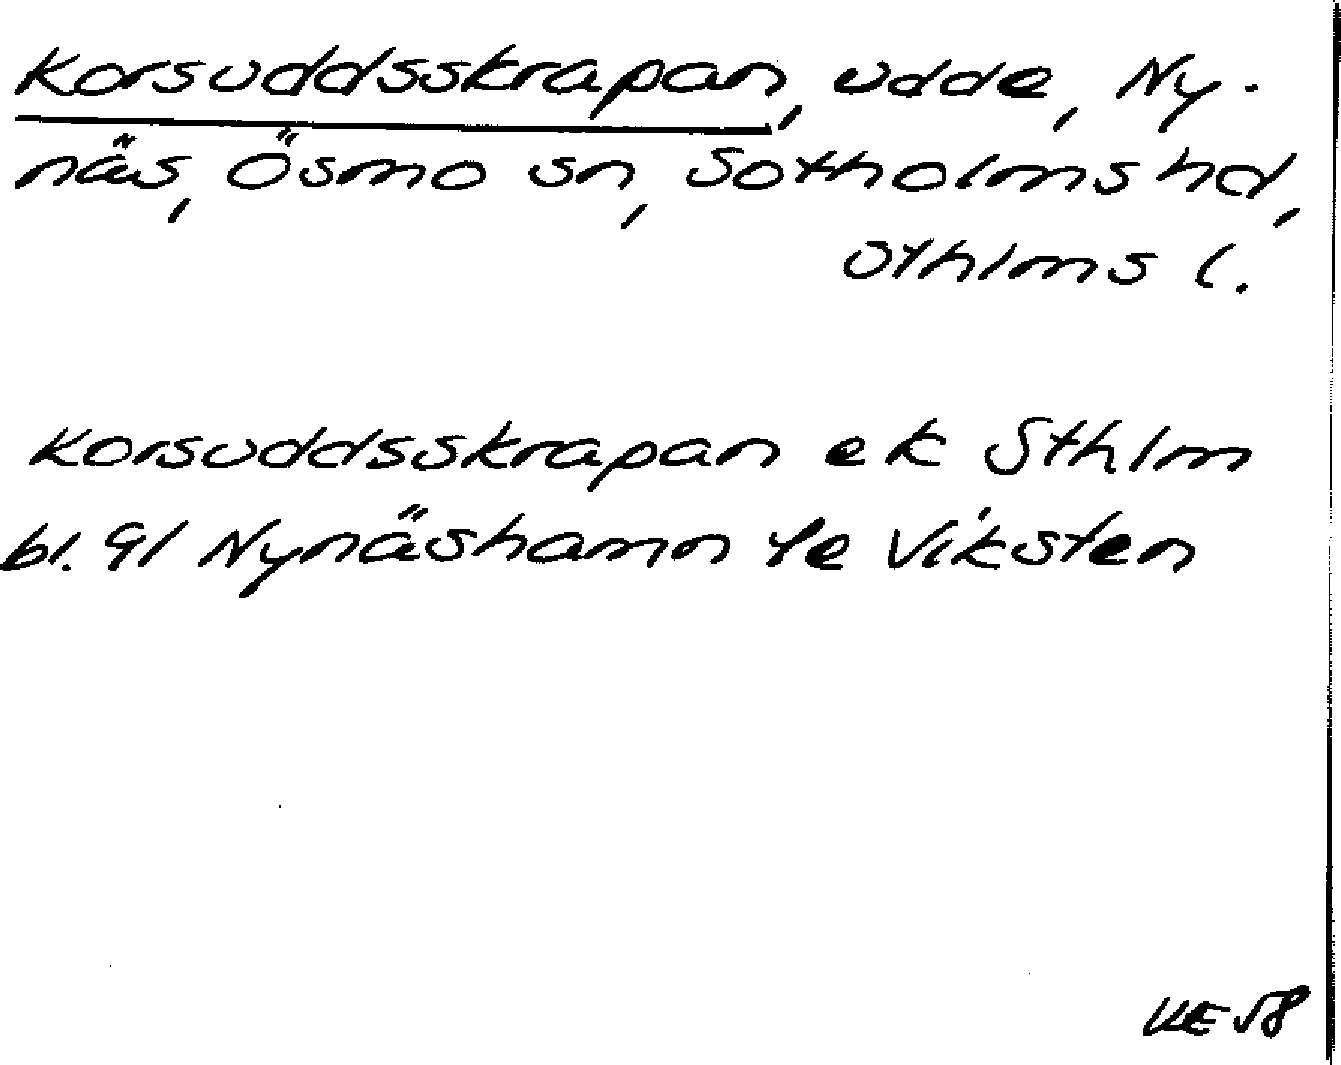 Korsuddsskrapan, udde, Ny-
näs, Ösmo sn, Sotholms hd,
Sthlms l.
Korsuddsskrapan ek Sthlm
bl. 91 Nynäshamn fe Viksten
KE 58